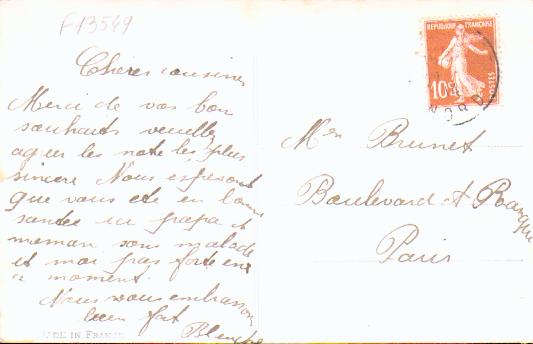 F13549
Chères cousines
Merci de vos bon
souhaits veuillez
agreer les notre les plus
sincere Nous esperont
que vous ete en bonne
santée ici papa et
meman sons malade
et moi pas forte en
ce moment.
Nous vous embrassons
bien fort
Blanche
MADE IN FRANCE
REPUBLIQUE FRANÇAISE
10c
POSTES
NORD
Brunet
Boulevard
Paris